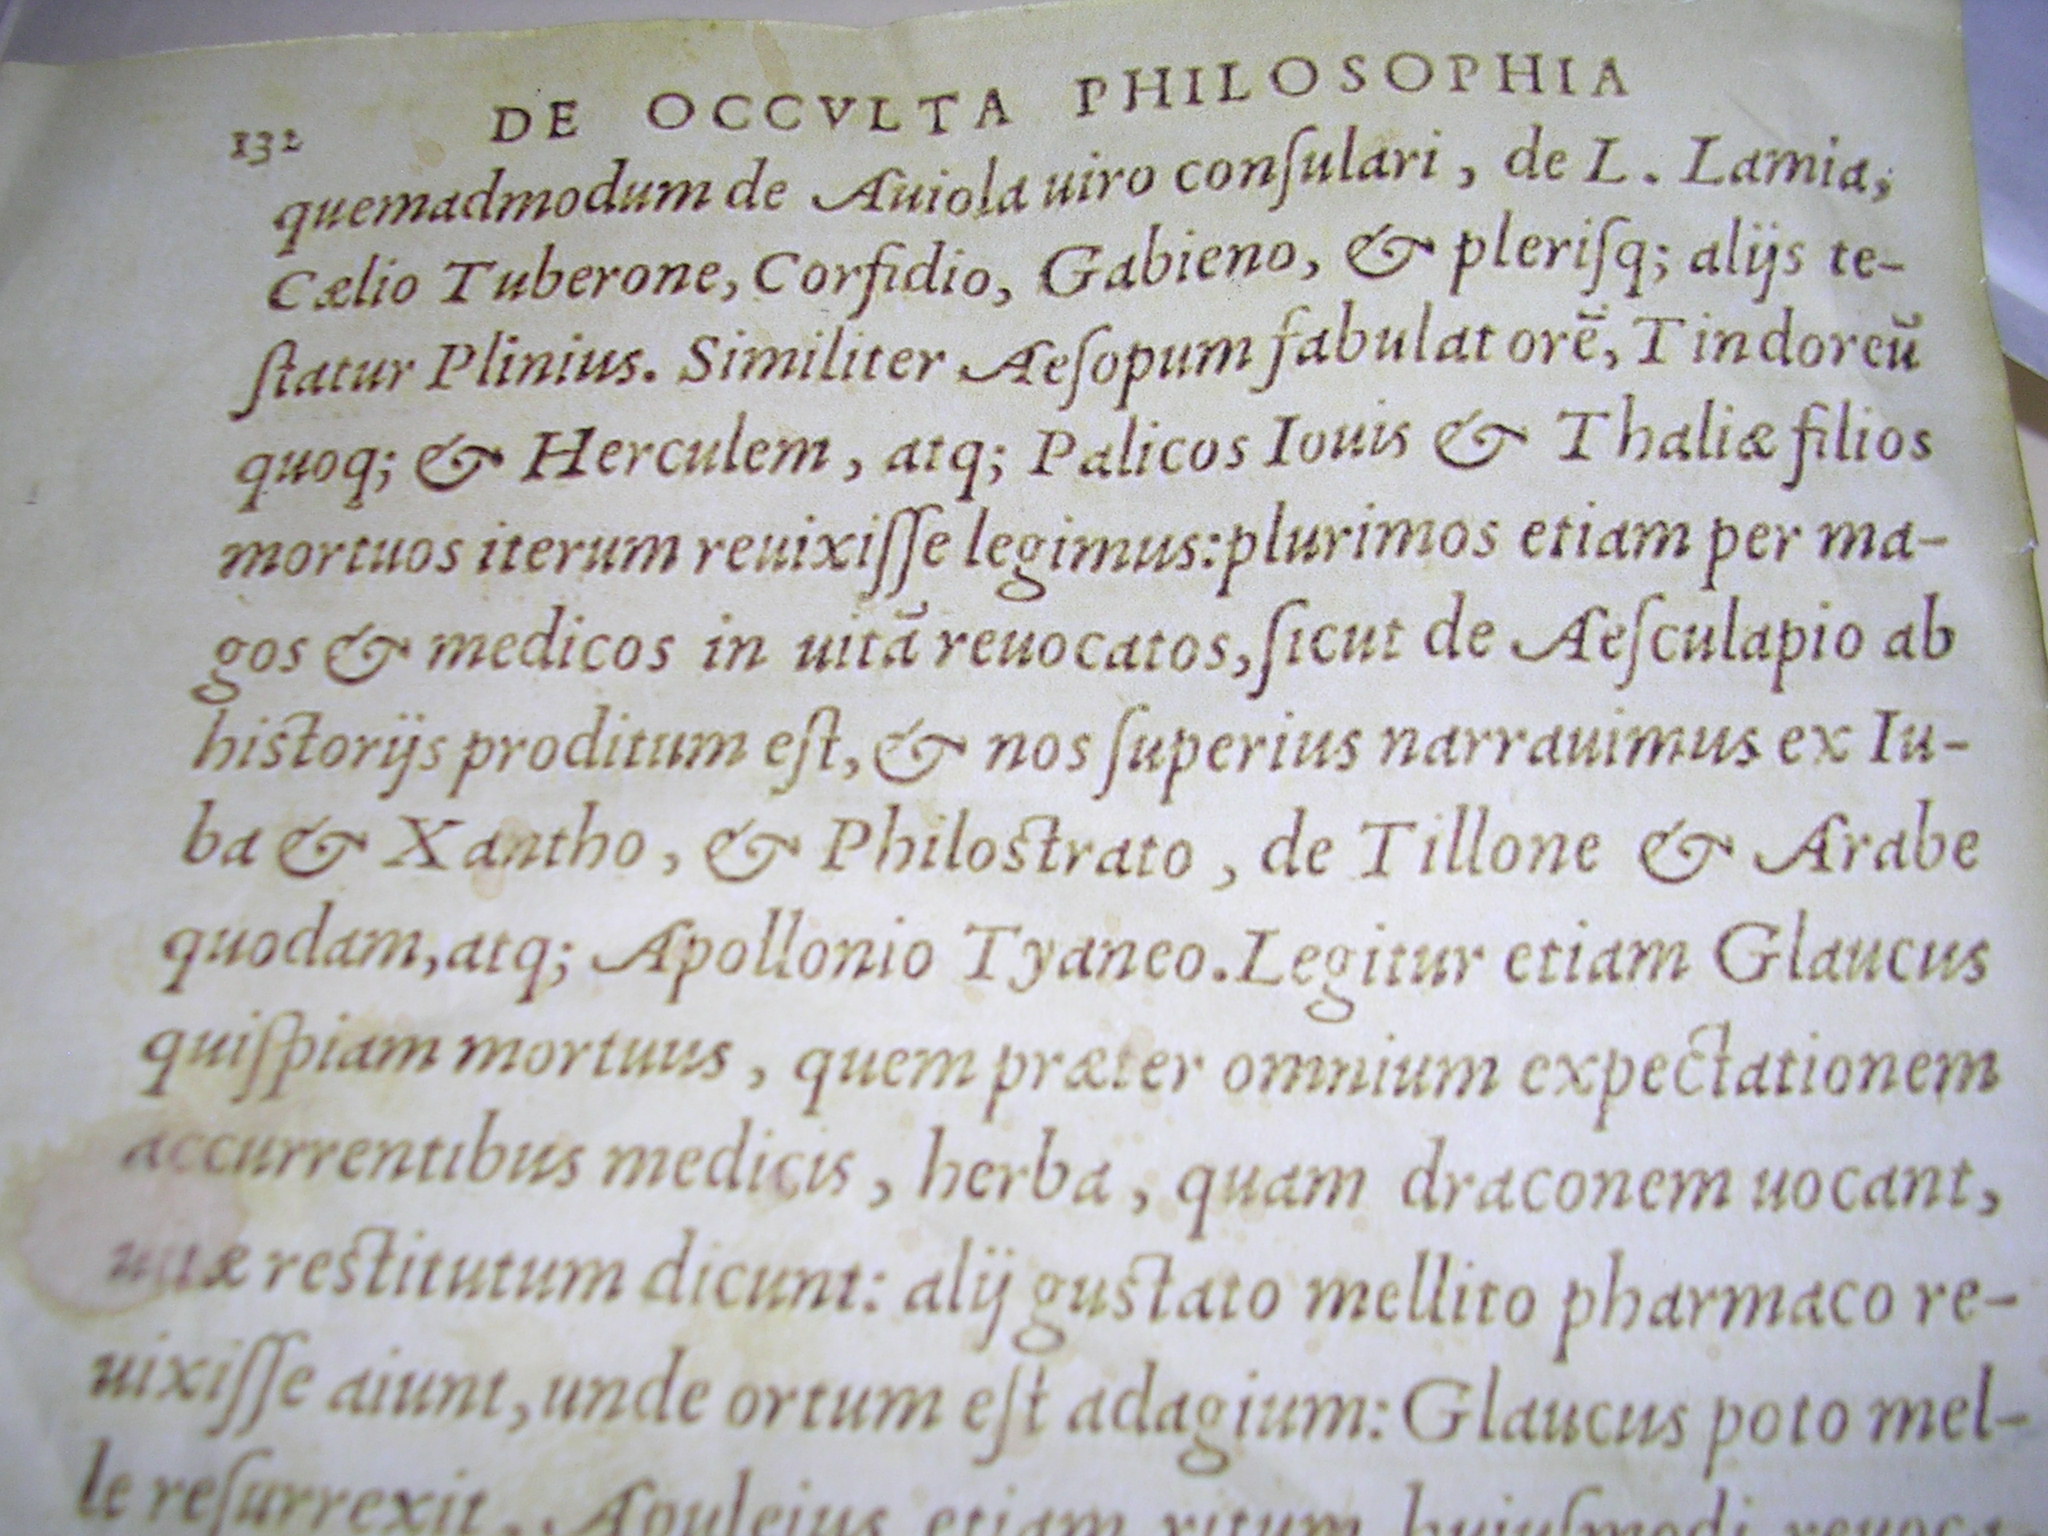 132 DE OCCVLTA PHILOSOPHIA
quemadmodum de Auiola uiro conſulari, de L. Lamia,
Cælio Tuberone, Corfidio, Gabieno, & pleriſq; alijs te-
ſtatur Plinius. Similiter Aeſopum fabulatorē, Tindoreū
quoq; & Herculem, atq; Palicos Iouis & Thaliæ filios
mortuos iterum reuixiſſe legimus: plurimos etiam per ma-
gos & medicos in uitā reuocatos, ſicut de Aeſculapio ab
hiſtorijs proditum eſt, & nos ſuperius narrauimus ex Iu-
ba & Xantho, & Philoſtrato, de Tillone & Arabe
quodam, atq; Apollonio Tyaneo. Legitur etiam Glaucus
quiſpiam mortuus, quem præter omnium expectationem
accurrentibus medicis, herba, quam draconem uocant,
uitæ reſtitutum dicunt: alij guſtato mellito pharmaco re-
uixiſſe aiunt, unde ortum eſt adagium: Glaucus poto mel-
le reſurrexit. Apuleius etiam ritum huiuſmodi reuoca